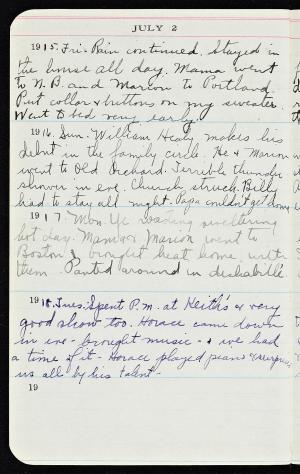 JULY 2
1915. Fri. Rain continued. Stayed in
the house all day. Mama went
to N.B. and Marion to Portland.
Put collar & buttons on my sweater.
Went to bed very early.
1916. Sun. William Healy makes his
debut in the family circle. He & Marion
went to Old Orchard. Terrible thunder
shower in eve. Church struck. Billy
had to stay all night. Papa couldn't get home
1917. Mon. Ye roasting sweltering
hot day. Mama & Marion went to
Boston & brought heat home with
them. Panted around in deshabille
1918. Tues. Spent P.M. at Keith's & very
good show too. Horace came down
in eve - brought music - & we had
a time of it - Horace played piano & surprised
us all by his talent -
19